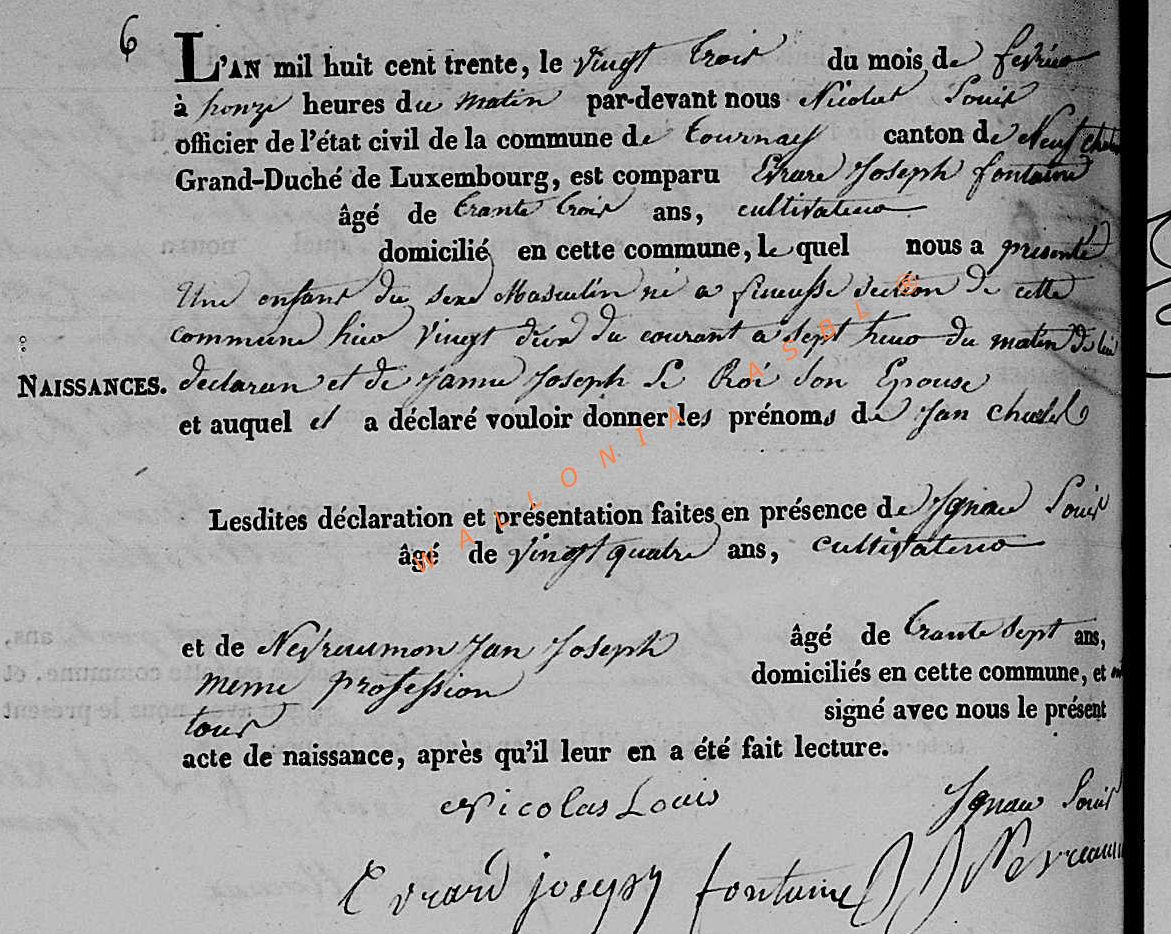 6
L'AN mil huit cent trente, le vingt trois du mois de fevrier
à honze heures du matin par-devant nous Nicolas Louis
officier de l'état civil de la commune de tournay canton de Neufchateau
Grand-Duché de Luxembourg, est comparu Evrare Joseph fontaine
âgé de trante trois ans, cultivateur
domicilié en cette commune, le quel nous a présenté
Une enfant du sexe Masculin né a section de cette
commune hier vingt deux du courant a sept heur du matin de lui
NAISSANCES. declaran et de Janne Joseph Le Roi son Epouse
et auquel il a déclaré vouloir donner les prénoms de Jan
Lesdites déclaration et présentation faites en présence de Ignace Louis
âgé de vingt quatre ans, cultivateur
et de Nevraumon Jan Joseph âgé de trante sept ans,
meme profession domiciliés en cette commune, et
tous signé avec nous le présent
acte de naissance, après qu'il leur en a été fait lecture.
Nicolas Louis Ignace Louis
Evrard joseph fontaine J J Nevraum
WALLONIA ASBL ©